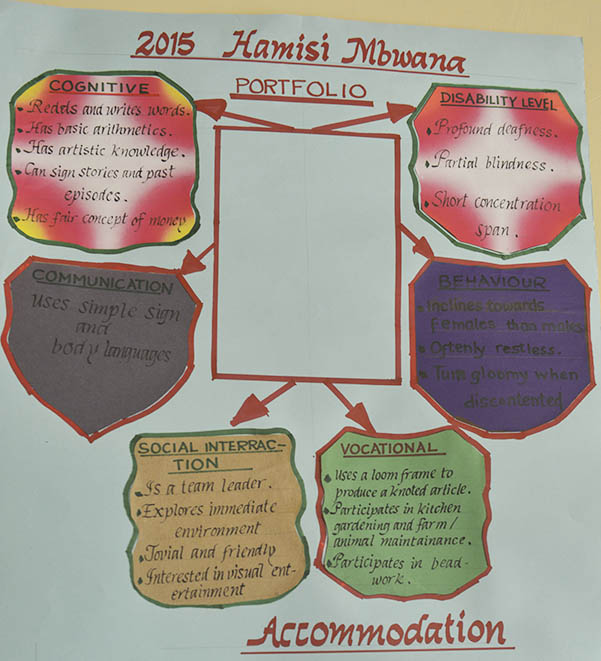 2015 Hamisi Mbwana
PORTFOLIO
COGNITIVE
Reads and writes words.
Has basic arithmetics.
Has artistic knowledge.
Can sign stories and past
episodes.
Has fair concept of money
DISABILITY LEVEL
Profound deafness.
Partial blindness.
Short concentration
span.
COMMUNICATION
uses simple sign
and
body languages
BEHAVIOUR
Inclines towards
females than males
Oftenly restless.
Turn gloomy when
discontented
SOCIAL INTERRAC-
TION
Is a team leader.
Explores immediate
environment
Jovial and friendly
Interested in visual ent-
ertainment
VOCATIONAL
Uses a loom frame to
produce a knoted article.
Participates in kitchen
gardening and farm/
animal maintainance.
Participates in bead-
work.
Accommodation